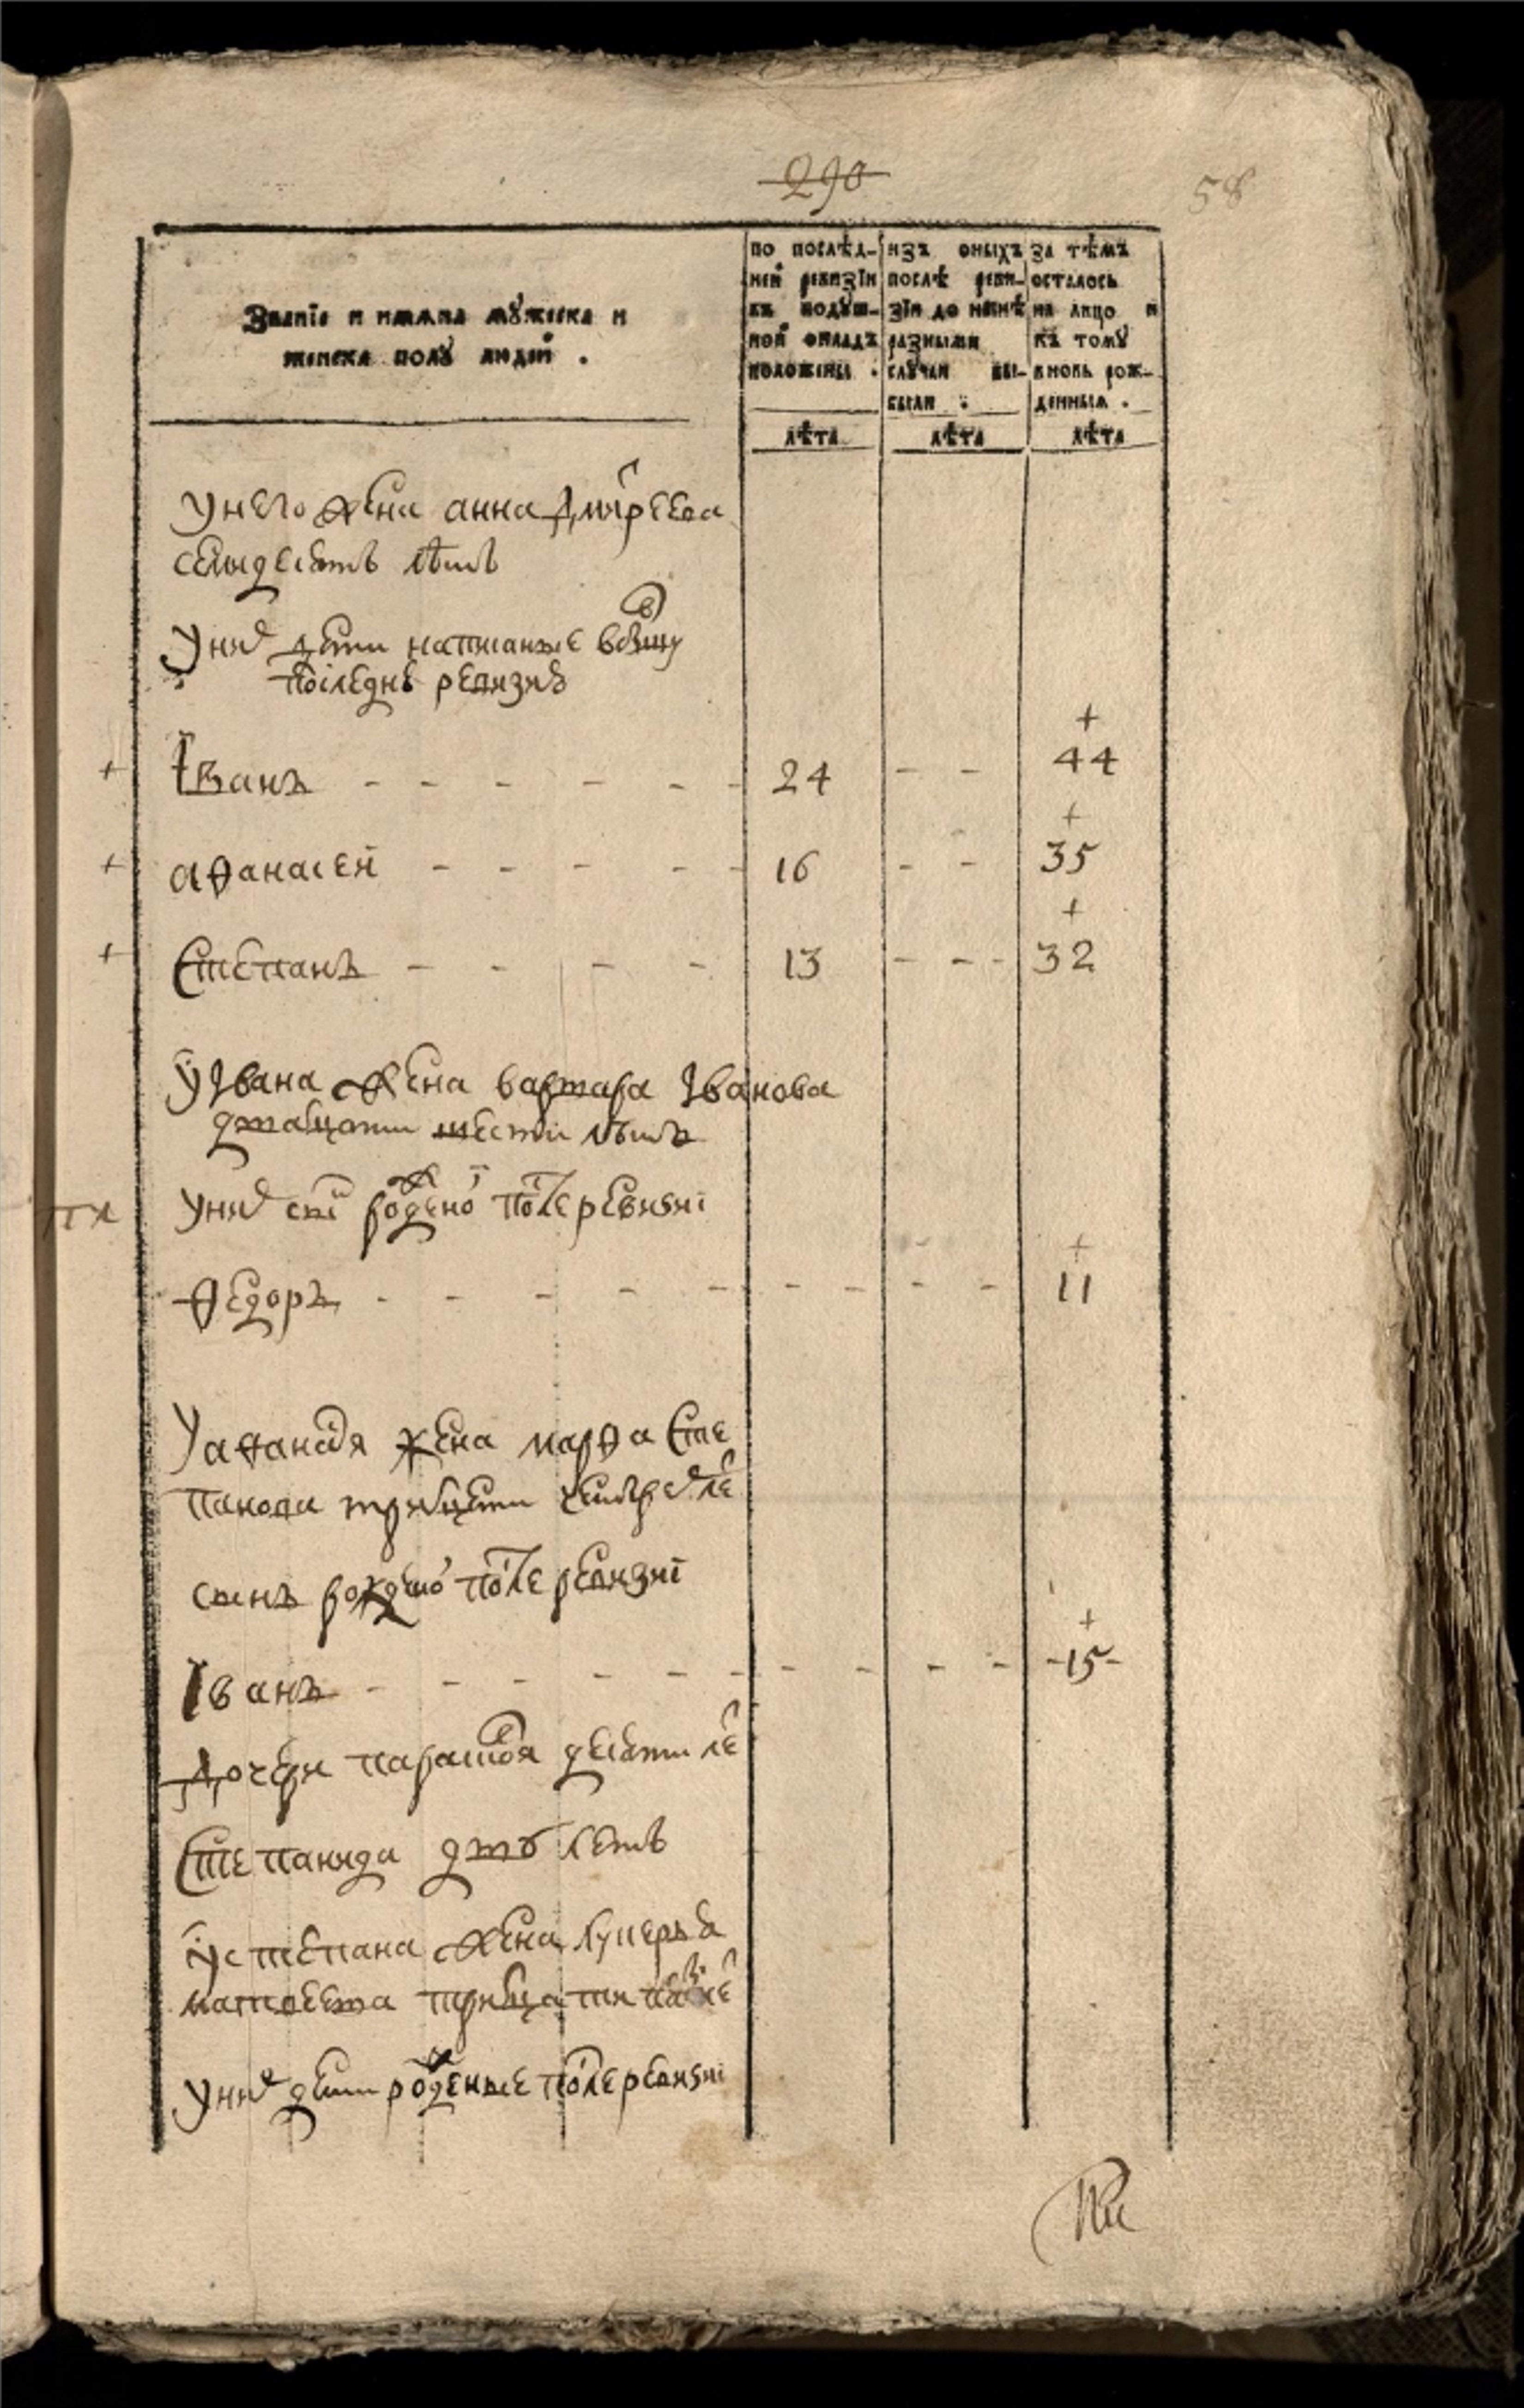 290
58
Званїе и имяна мꙋжеска и
женска полꙋ людей .
по послѣд-
ней ревизїи
въ подꙋш-
ной окладъ
положены .
изъ оныхъ
послѣ реви-
зїи до нынѣ
разными
слꙋчаи вы-
были .
за тѣмъ
осталось
на лицо и
къ томꙋ
вновь рож-
денныя .
лѣта
лѣта
лѣта
у него жена анна дмитреева
семьдесятъ лѣтъ
у них дети написаные
последнѣ ревизиѣ
+
+ Їванъ - - - - - - 24 - - 44
+
+ аѳанасей - - - - - 16 - - 35
+
+ Степанъ - - - - 13 - - - 32
у Івана жена варвара Іванова
дватцати шести лѣтъ
у них сн҃ъ рожденой после ревизиі
+
Ѳедоръ - - - - - - - - - 11
у аѳанася жена марѳа Сте
панова тритцети четырех ле
сынъ рожденой после ревизиі
+
Їванъ - - - - - - - - - - -15-
дочери парасковя десяти ле
Степанида двѵ летъ
у степана жена лукерья
матвеева тритцати
у них дети рожденые после ревизиі